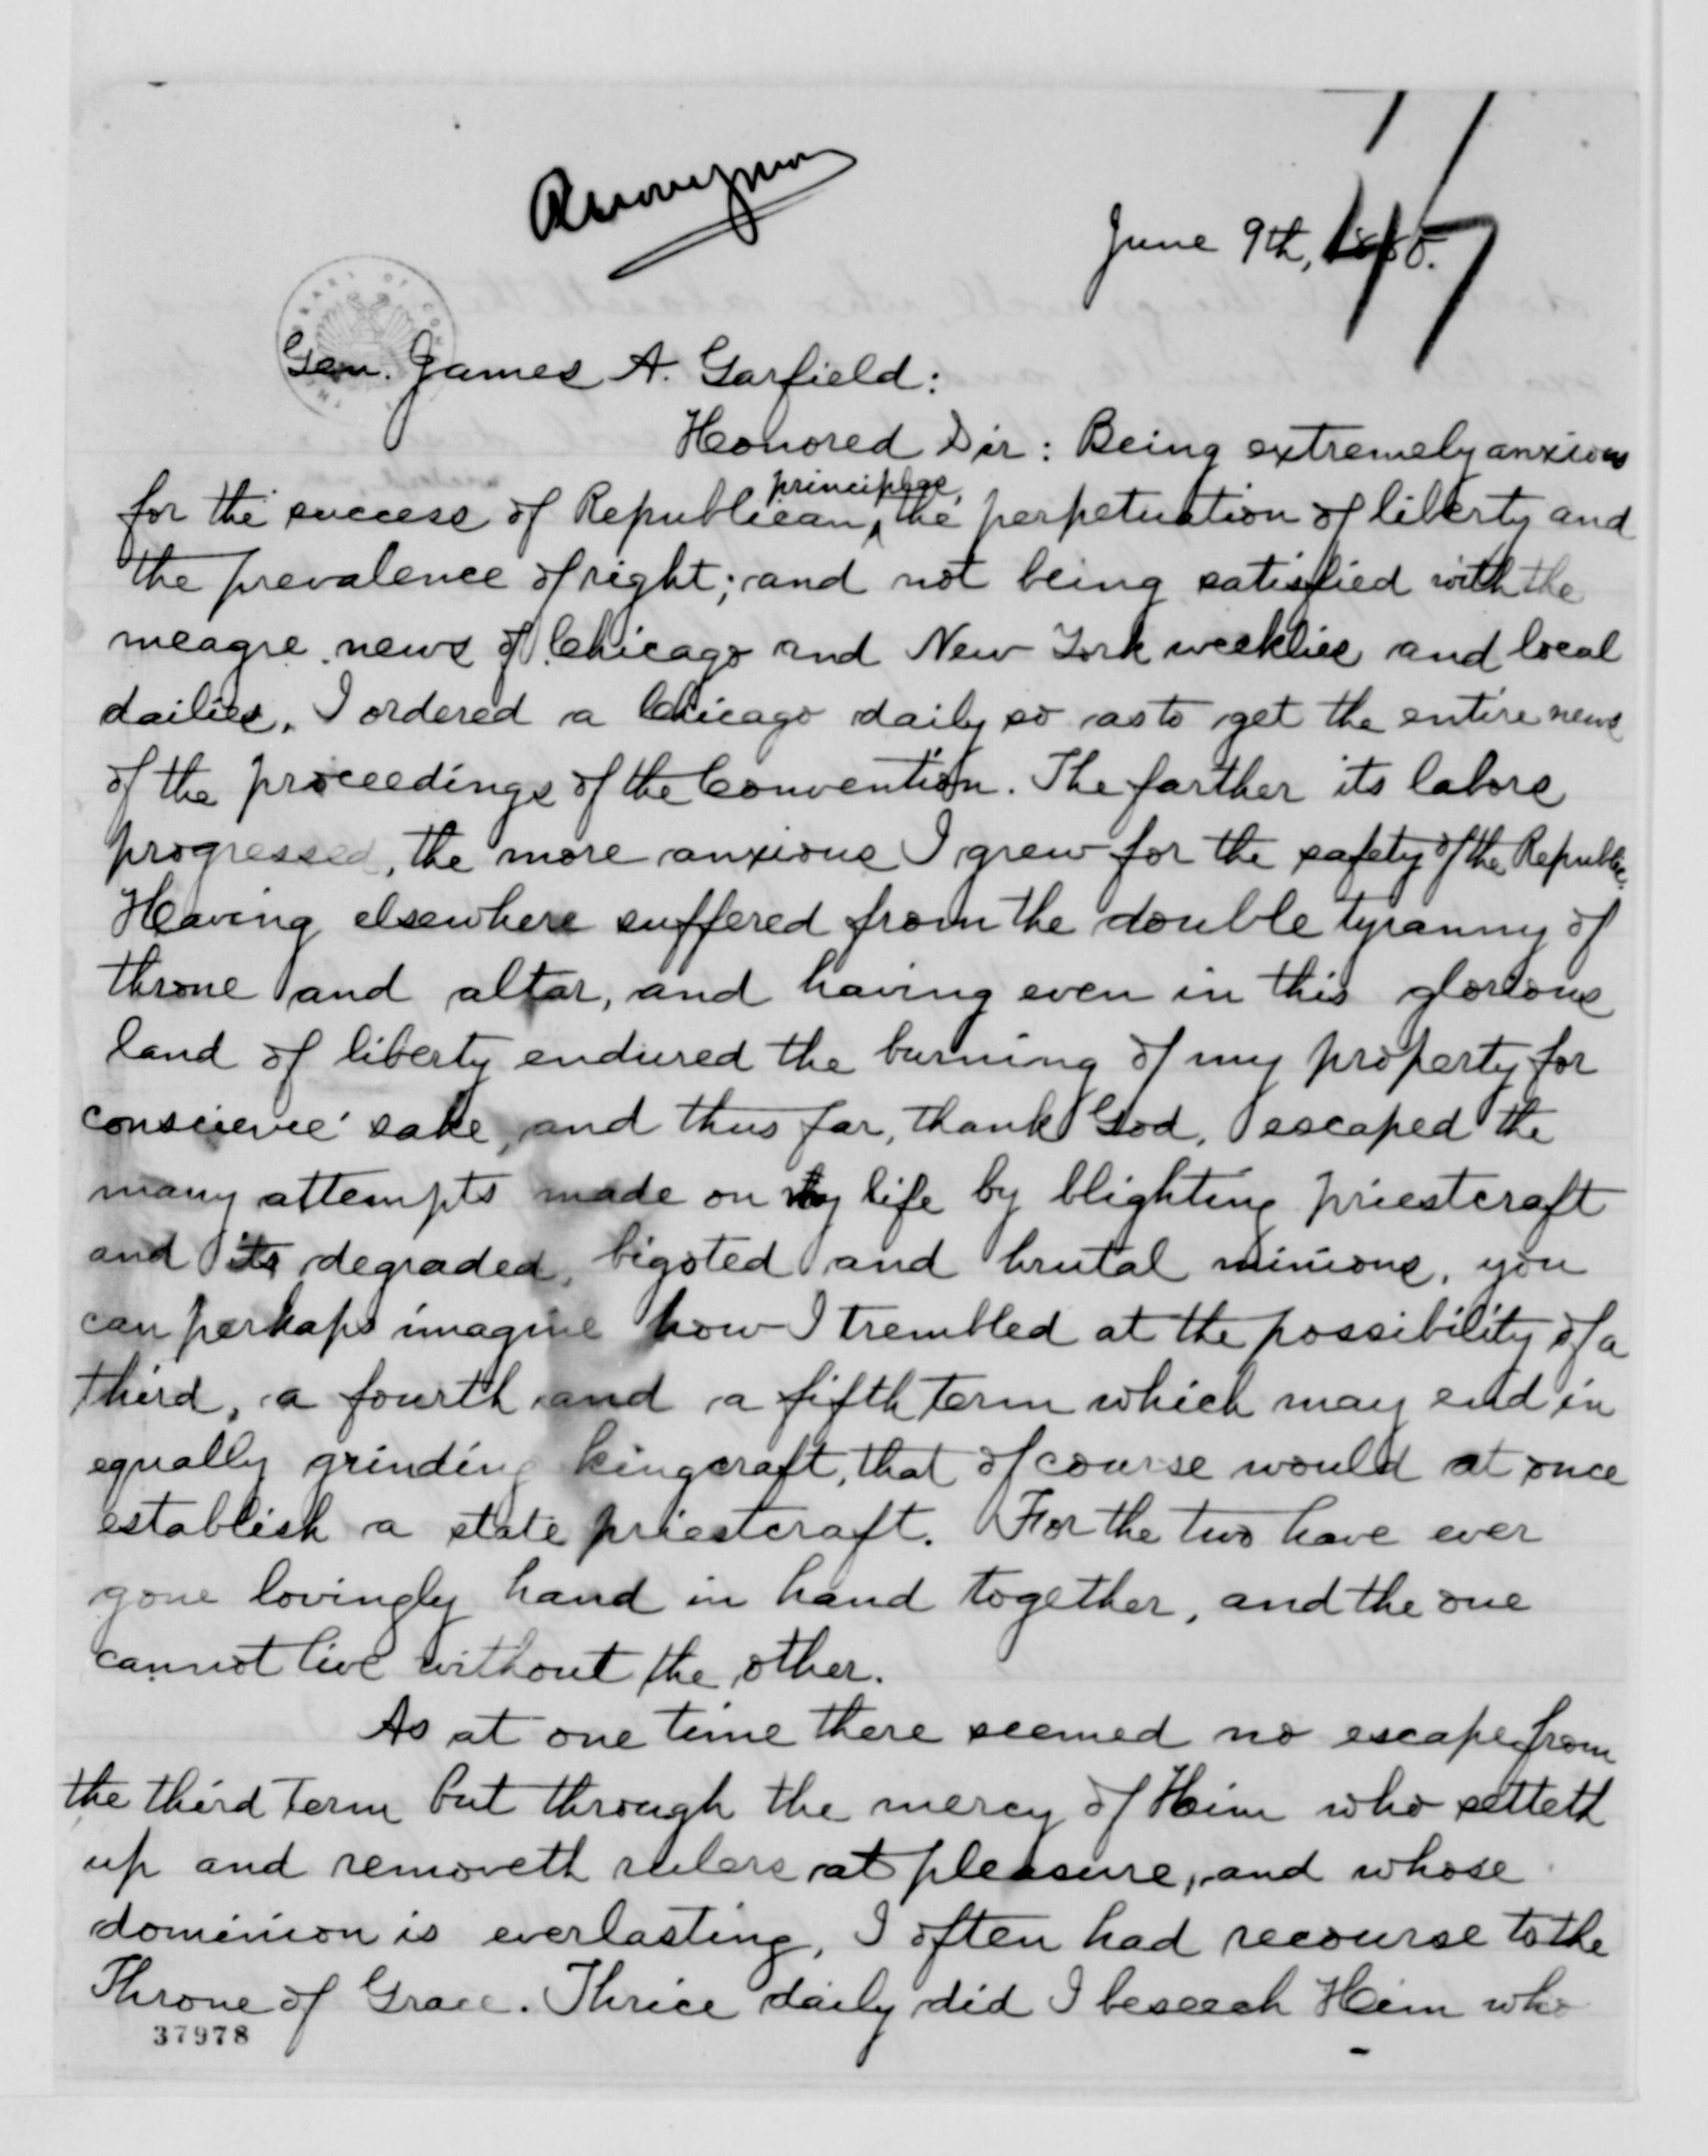 Anonymous
June 9th, 1880.
Gen. James A. Garfield:
Honored Sir: Being extremely anxious
principles,
for the success of Republican ^ the perpetuation of liberty and
the prevalence of right; and not being satisfied with the
meagre news of Chicago and New York weeklies and local
dailies, I ordered a Chicago daily so as to get the entire news
of the proceedings of the Convention. The farther its labors
progressed, the more anxious I grew for the safety of the Republic.
Having elsewhere suffered from the double tyranny of
throne and altar, and having even in this glorious
land of liberty endured the burning of my property for
conscience' sake, and thus far, thank God, escaped the
many attempts made on my life by blighting priestcraft
and its degraded, bigoted and brutal minions, you
can perhaps imagine how I trembled at the possibility of a
third, a fourth and a fifth term which may end in
equally grinding kingcraft, that of course would at once
establish a state priestcraft. For the two have ever
gone lovingly hand in hand together, and the one
cannot live without the other.
As at one time there seemed no escape from
the third term but through the mercy of Him who setteth
up and removeth rulers at pleasure, and whose
dominion is everlasting, I often had recourse to the
Throne of Grace. Thrice daily did I beseech Him who
37978